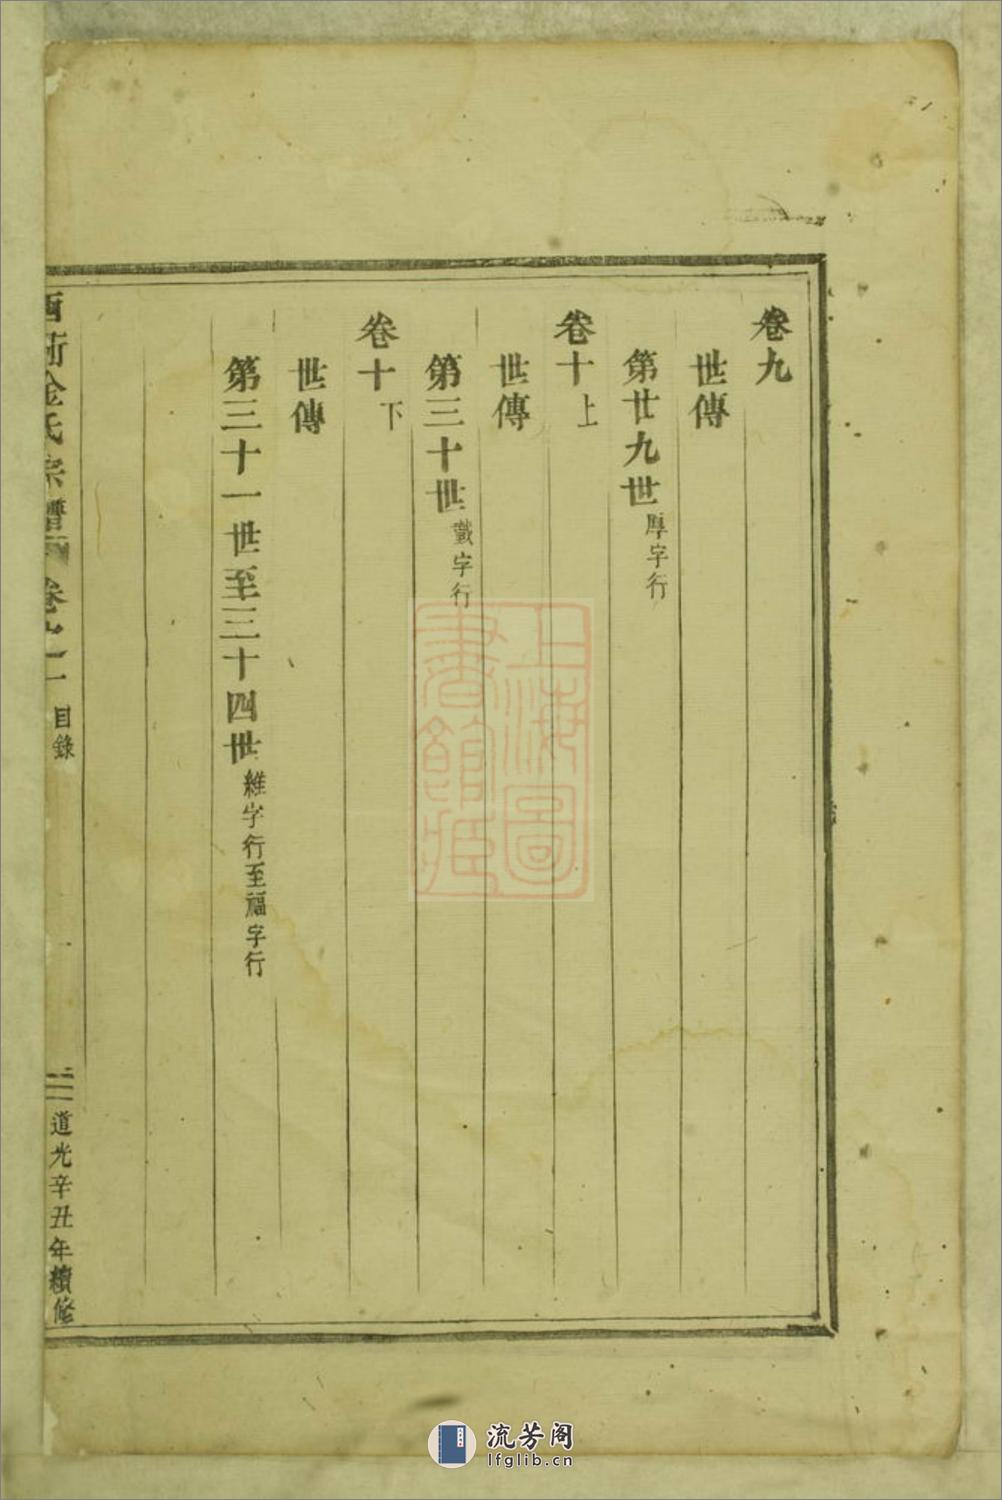 卷九
世傳
第廿九世厚字行
卷十上
世傳
第三十世載字行
卷十下
世傳
第三十一世至三十四世維字行至福字行
金氏宗譜
卷之一
目錄
二
道光辛丑年續修
上海圖書館藏
流芳阁
lfglib.cn